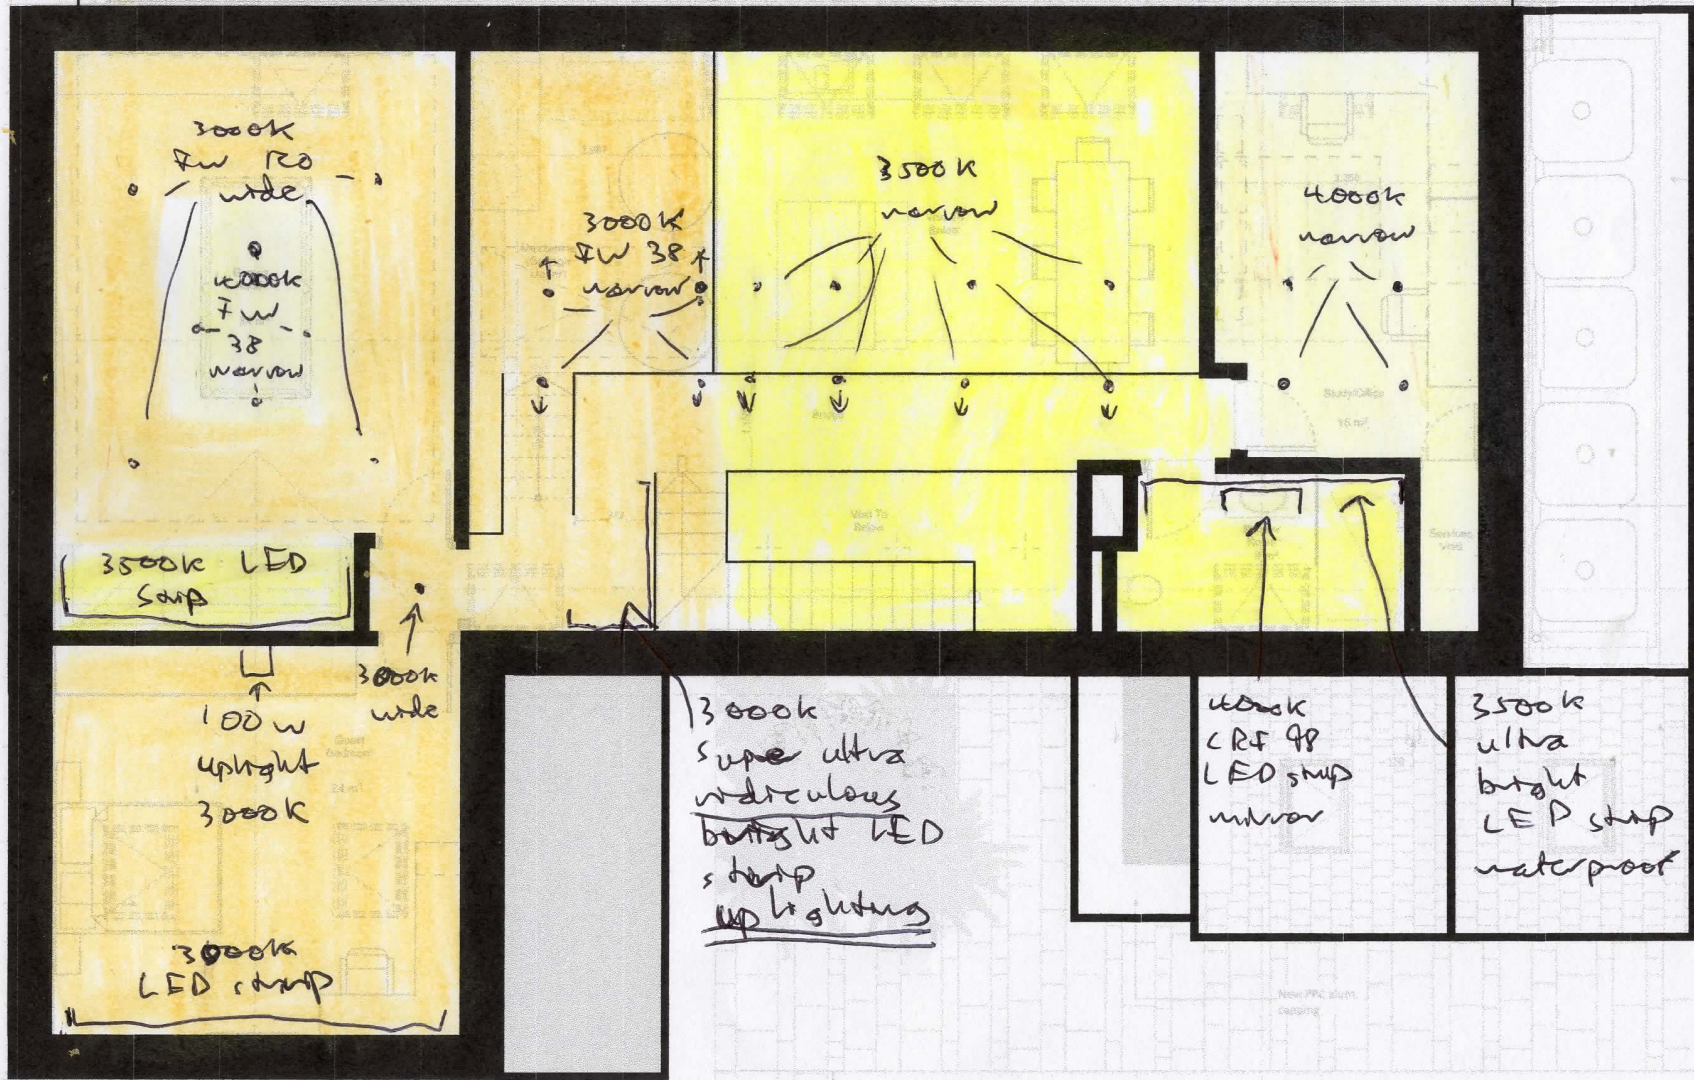 3000K
7W 120
wide
4000K
7W
38
narrow
3000K
7W 38
narrow
3500K
narrow
4000K
narrow
3500K LED
strip
3000K
wide
100W
uplight
3000K
3000K
LED strip
3000K
super ultra
ridiculous
bright LED
strip
up lighting
4000K
CRI 98
LED strip
mirror
3500K
ultra
bright
LED strip
waterproof
Void To
Below
Study/Office
16 m²
Services
Void
Guest
Bedroom
24 m²
New PPC alum.
capping